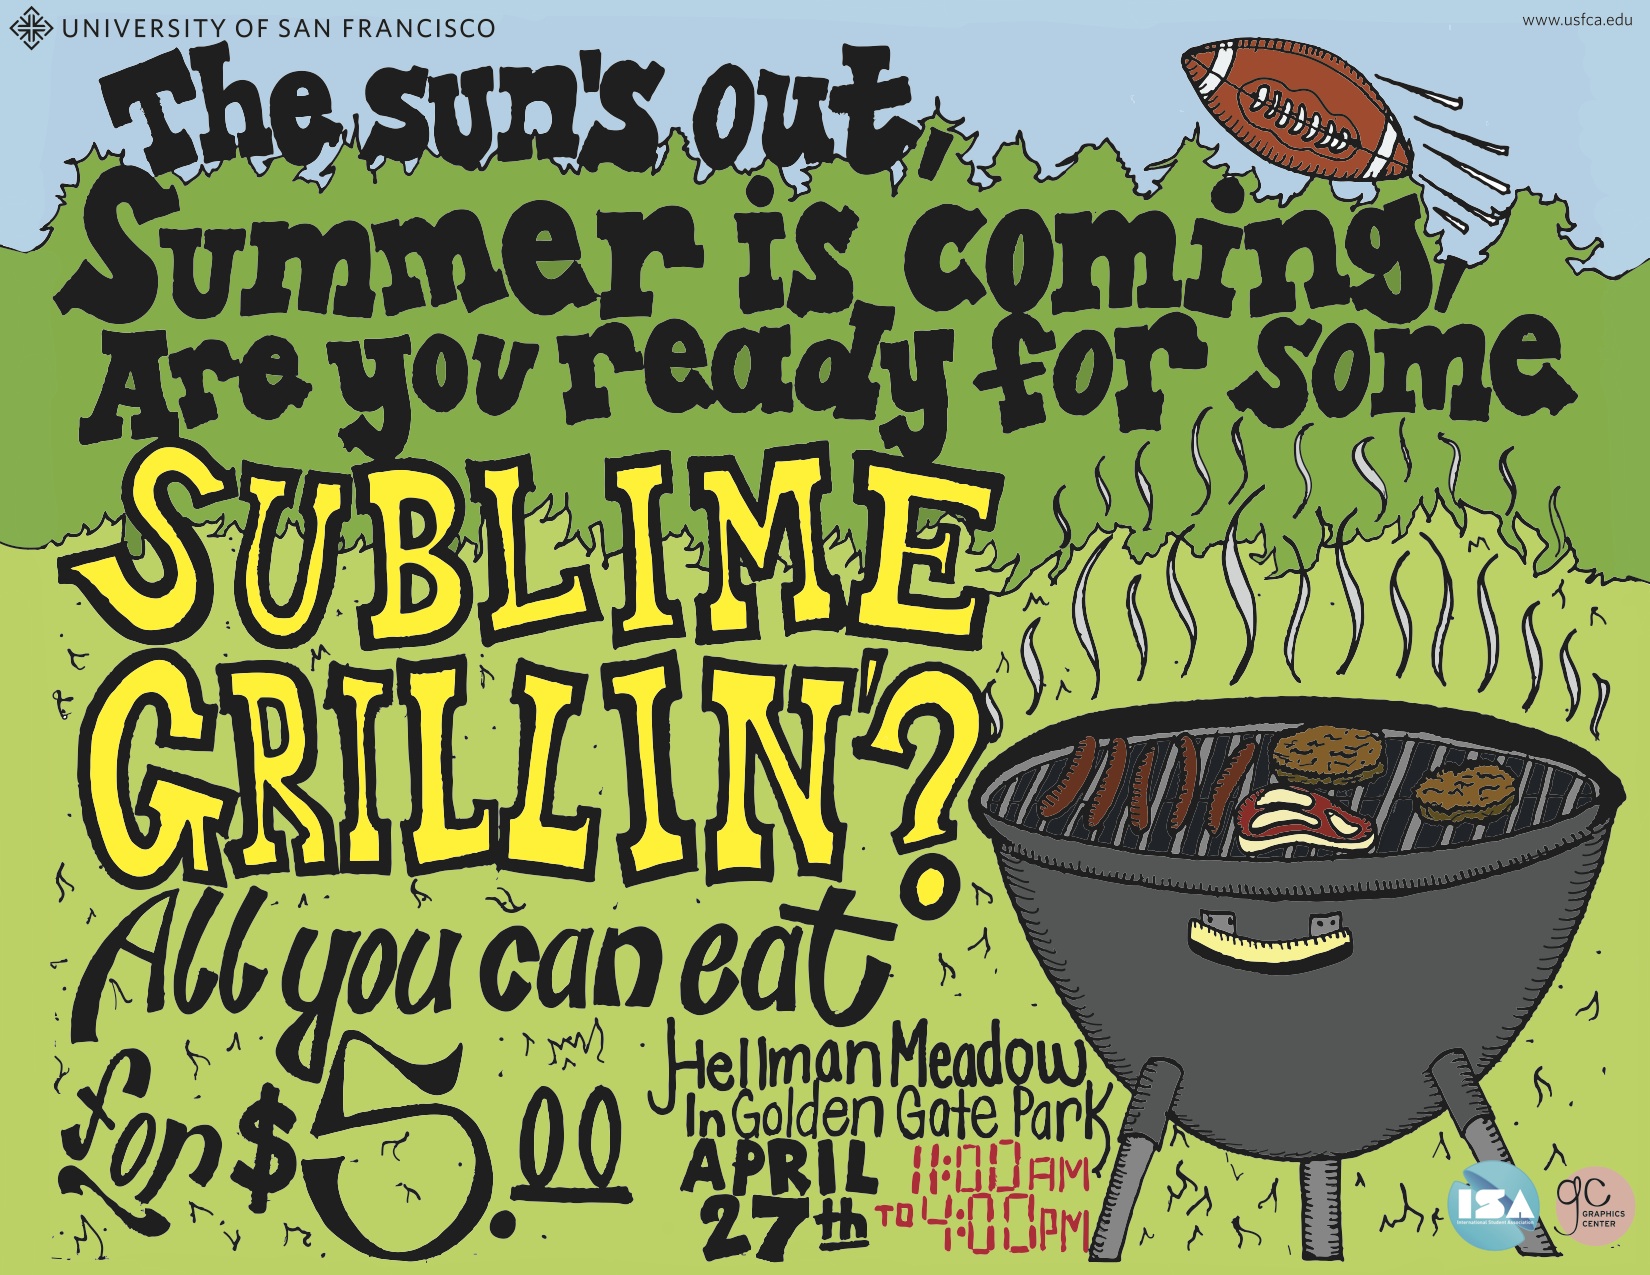 UNIVERSITY OF SAN FRANCISCO
www.usfca.edu
The sun's out,
Summer is coming,
Are you ready for some
SUBLIME
GRILLIN'?
All you can eat
for $5.00
Hellman Meadow
In Golden Gate Park
APRIL
27th
11:00AM
TO 4:00PM
ISA
International Student Association
gc
GRAPHICS
CENTER